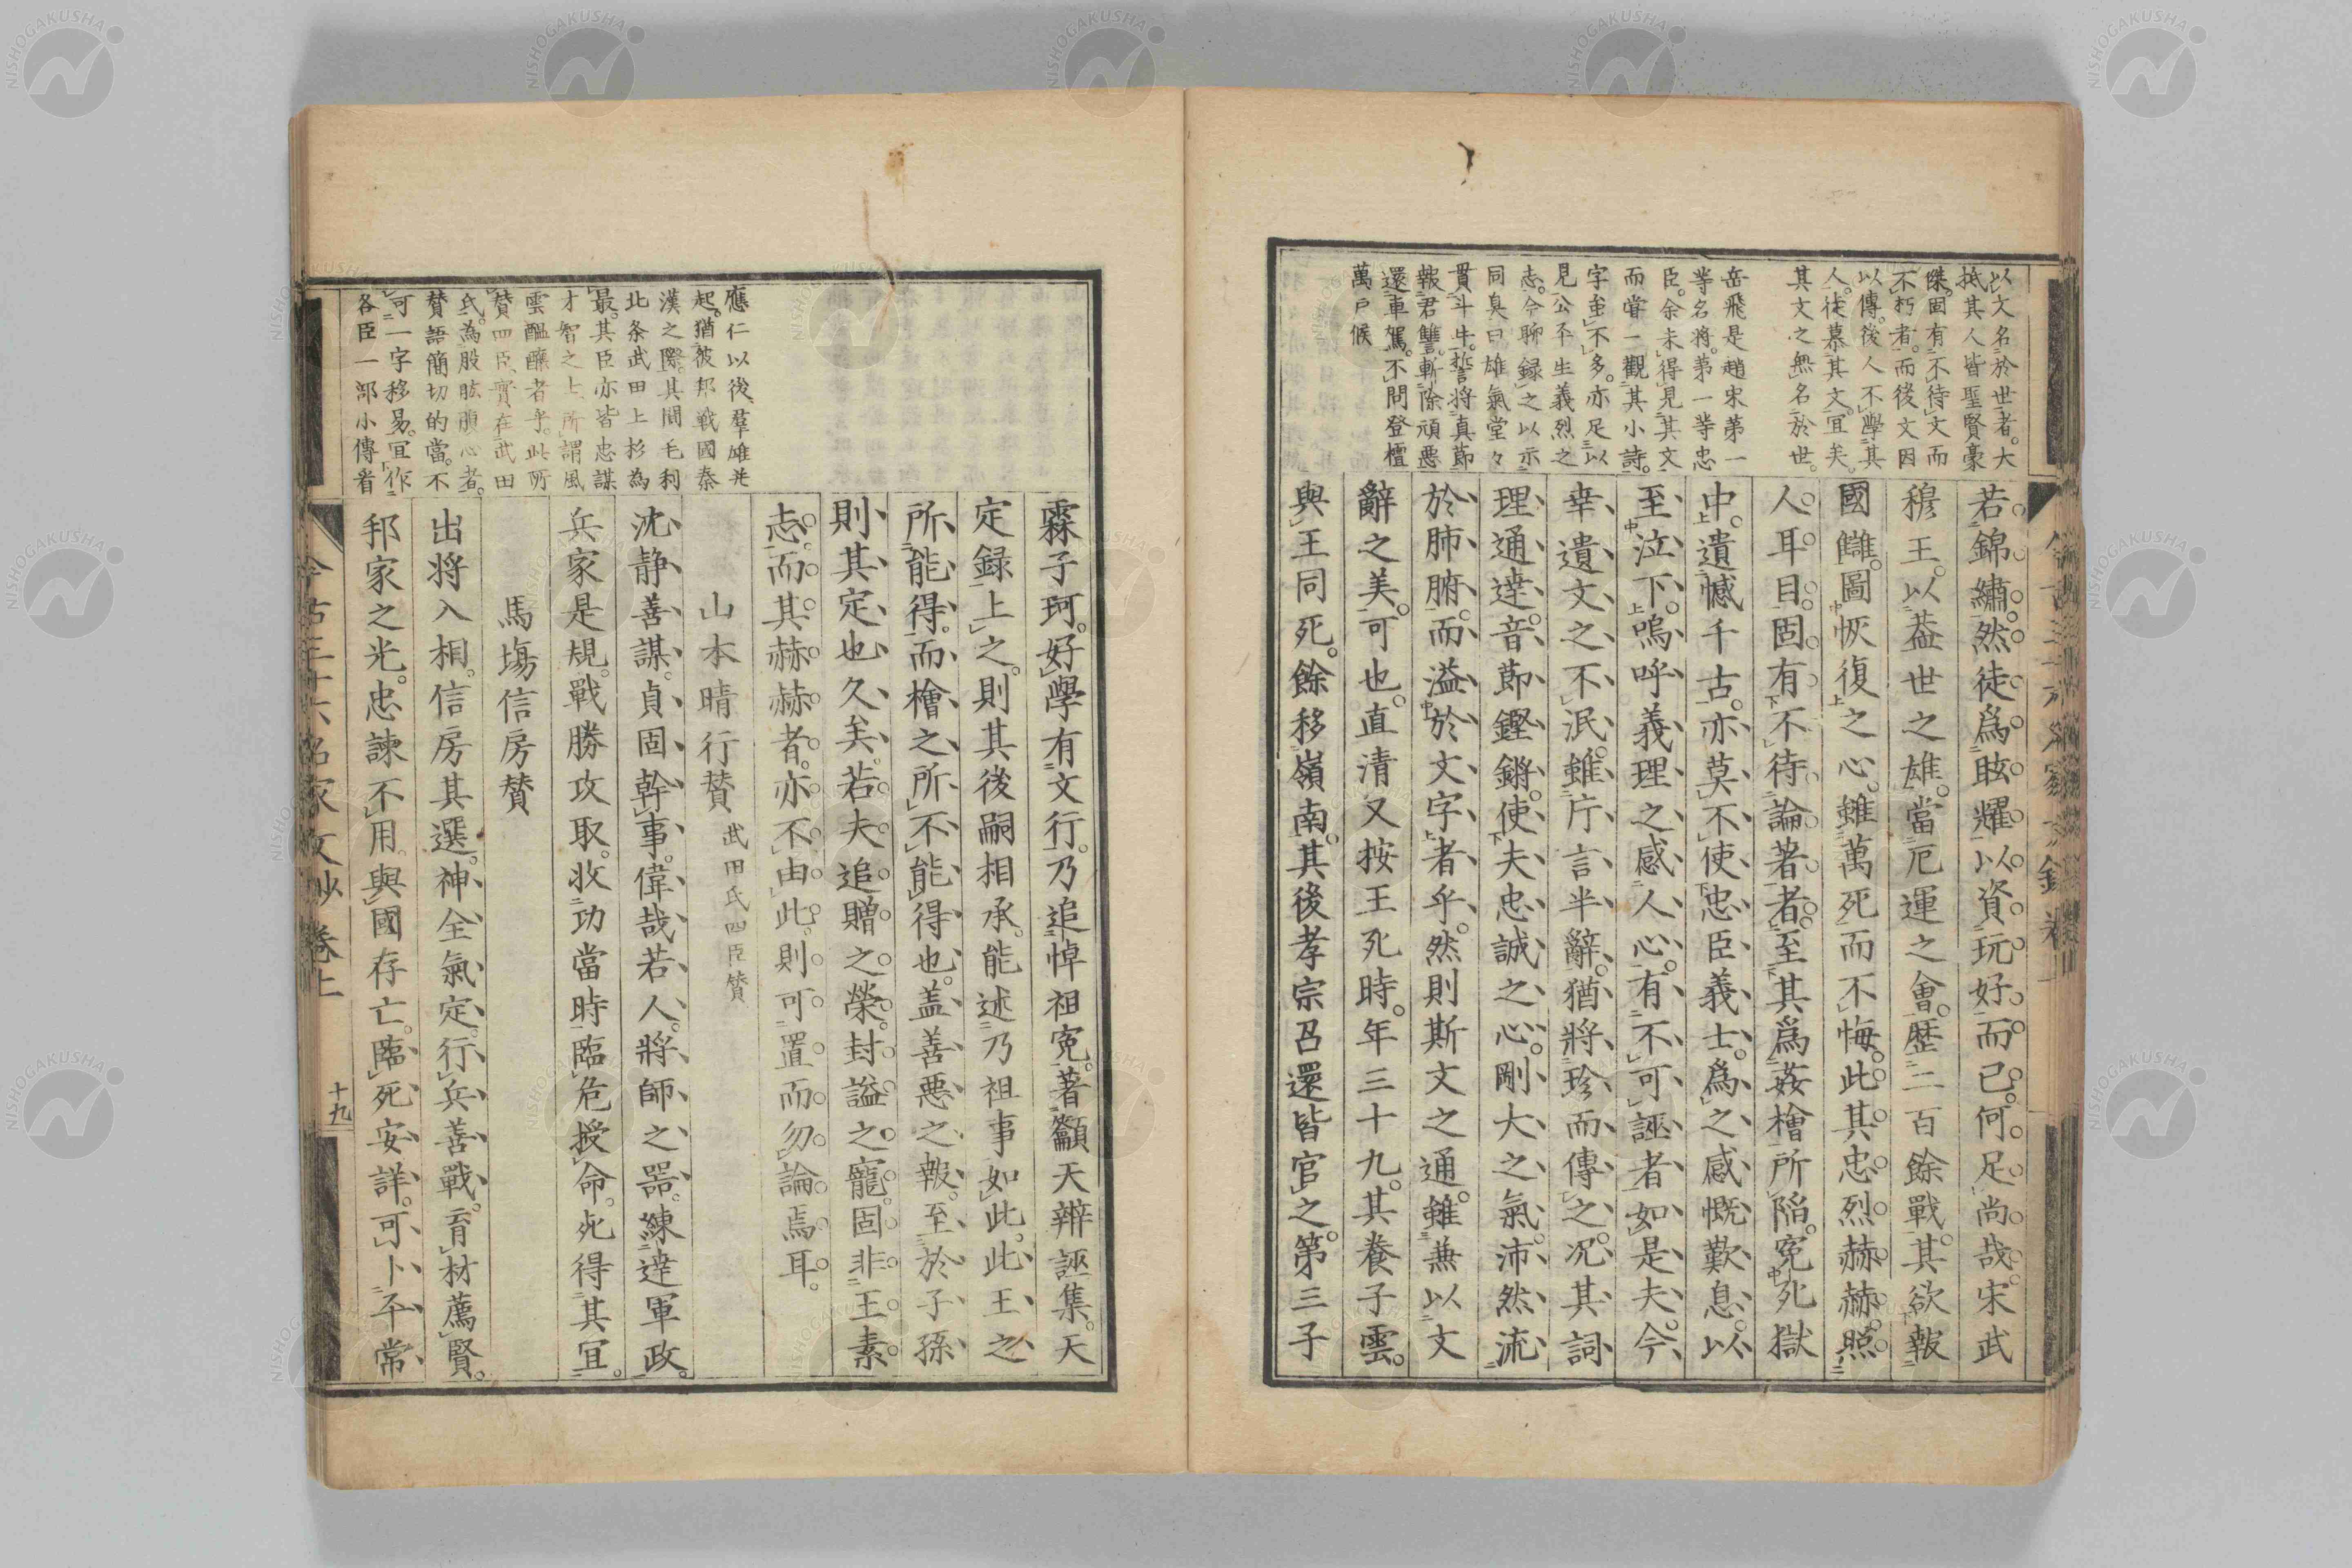 以文名於世者。大
抵其人皆聖賢豪
傑。固有不待文而
不朽者。而後文因
以傳。後人不學其
人。徒慕其文。宜矣。
其文之無名於世。
岳飛是趙宋第一
等名將。第一等忠
臣。余未得見其文
而嘗一觀其小詩。
字虽不多。亦足以
見公平生義烈之
志。今聊録之以示
同臭曰雄氣堂々
貫斗牛。誓將真節
報君讐。斬除頑惡
還車駕。不問登檀
萬戸候
若錦繡。然徒爲眩耀以資玩好而已。何足尚哉。宋武
穆王。以葢世之雄。當厄運之會。歷二百餘戰。其欲報
國讎。圖恢復之心。雖萬死而不悔。此其忠烈赫赫。照
人耳目。固有不待論著者。至其爲姦檜所陷。冤死獄
中。遺憾千古。亦莫不使忠臣義士。爲之感慨歎息。以
至泣下。嗚呼義理之感人心。有不可誣者如是夫。今
幸遺文之不泯。雖片言半辭。猶將珍而傳之。况其詞
理通達。音節鏗鏘。使夫忠誠之心。剛大之氣。沛然流
於肺腑。而溢於文字者乎。然則斯文之通。雖兼以文
辭之美。可也。直清又按王死時。年三十九。其養子雲。
與王同死。餘移嶺南。其後孝宗召還皆官之。第三子
霖子珂。好學有文行。乃追悼祖冤。著籲天辨誣集。天
定録上之。則其後嗣相承。能述乃祖事如此。此王之
所能得。而檜之所不能得也。盖善惡之報。至於子孫
則其定也久矣。若夫追贈之榮。封謚之寵。固非王素
志。而其赫赫者。亦不由此。則可置而勿論焉耳。
山本晴行賛 武田氏四臣賛
沈静善謀。貞固幹事。偉哉若人。將師之噐。練達軍政。
兵家是規。戰勝攻取。收功當時。臨危授命。死得其宜。
馬塲信房賛
出將入相。信房其選。神全氣定。行兵善戰。育材薦賢。
邦家之光。忠諫不用。與國存亡。臨死安詳。可卜平常
應仁以後。羣雄並
起。猶彼邦戰國秦
漢之際。其間毛利
北条武田上杉為
最。其臣亦皆忠謀
才智之上。所謂風
雲醞釀者乎。此所
賛四臣。實在武田
氏。為股肱腹心者。
賛語簡切的當。不
可一字移易。宜作
各臣一部小傳看
今古三十六名家文抄 卷上
十九